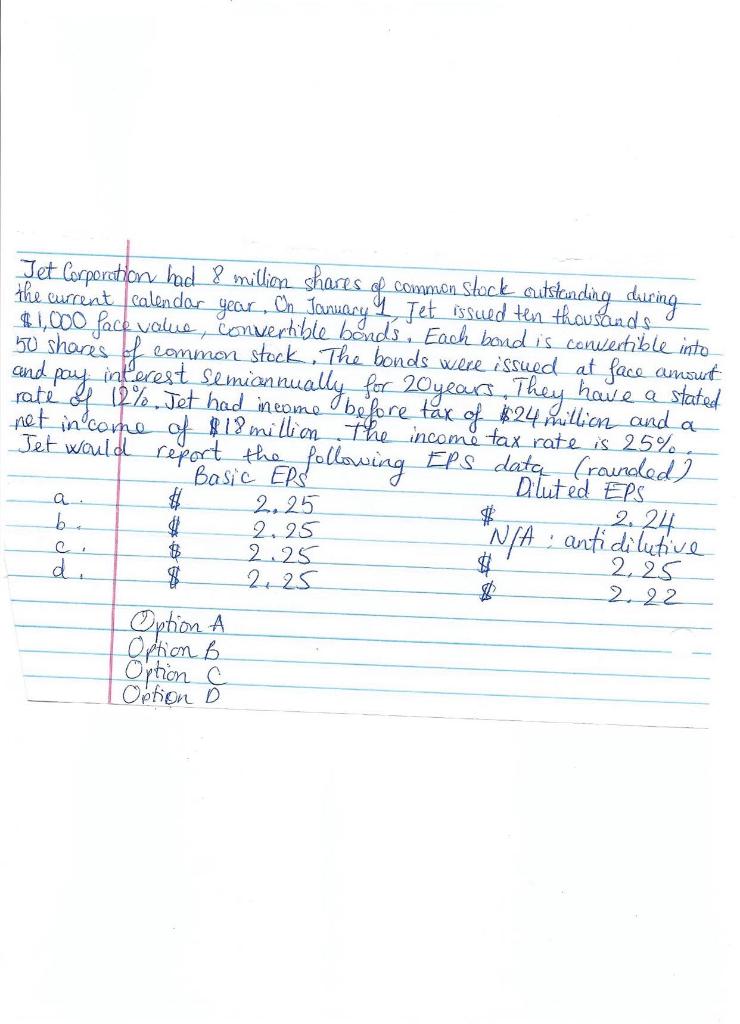 Jet Corporation had 8 million shares of common stock outstanding during
the current calendar year. On January 1, Jet issued ten thousands
$1,000 face value, convertible bonds. Each bond is convertible into
50 shares of common stock. The bonds were issued at face amount
and pay interest semiannually for 20 years. They have a stated
rate of 12%. Jet had income before tax of $24 million and a
net income of $18 million. The income tax rate is 25%.
Jet would report the following EPS data (rounded)
Basic EPS Diluted EPS
a. $ 2.25 $ 2.24
b. $ 2.25 N/A : antidilutive
c. $ 2.25 $ 2.25
d. $ 2.25 $ 2.22
Option A
Option B
Option C
Option D